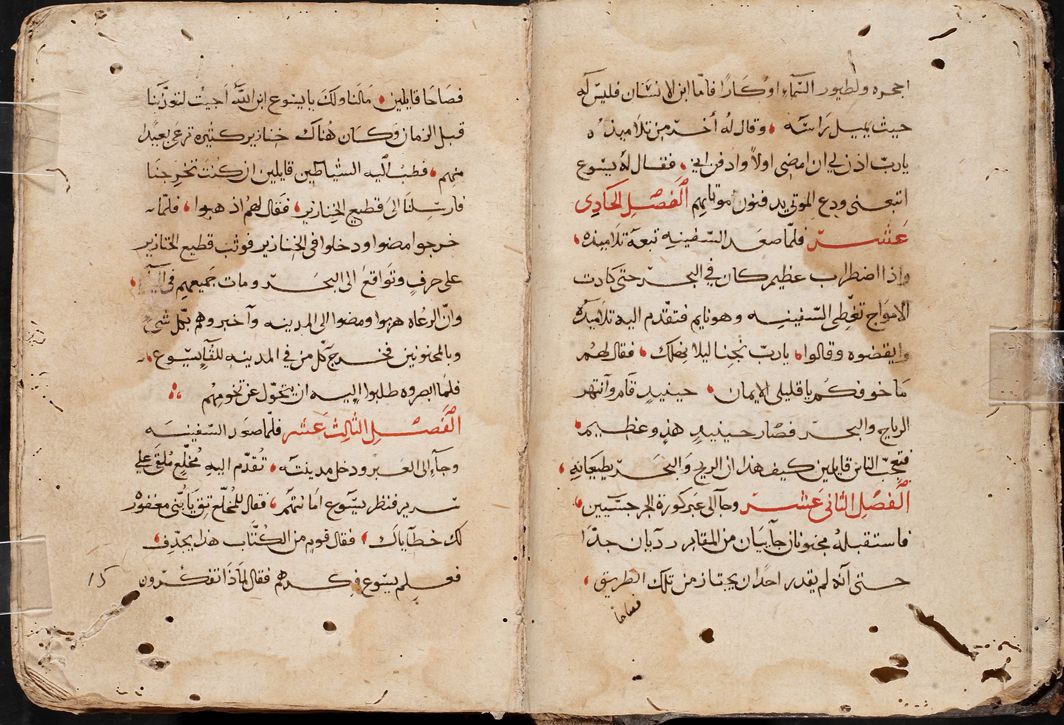 اجحره ولطيور السماء اوكارا فاما ابن الانسان فليس له
حيث يميل راسه وقال له اخر من تلاميذه
يارب اذن لي ان امضي اولا وادفن ابي فقال له يسوع
اتبعني ودع الموتي يدفنون موتاهم الفصل الحادي
عشر فلما صعد السفينه تبعه تلاميذه
واذا اضطراب عظيم كان في البحر حتي كادت
الامواج تغطي السفينه وهو نايم فتقدم اليه تلاميذه
وايقضوه وقالوا يارب نجنا ليلا نهلك فقال لهم
ما خوفكم يا قليلي الايمان حينيذ قام وانتهر
الرياح والبحر فصار حينيذ هدو عظيم
فتعجب الناس قايلين كيف هذا ان الريح والبحر يطيعانه
الفصل الثاني عشر وجا الي عبر كورة الجرجسيين
فاستقبله مجنونان جآييان من المقابر رديان جدا
حتي انه لم يقدر احد ان يجتاز من تلك الطريق
فصاحا
فصاحا قايلين مالنا ولك يا يسوع ابن الله اجيت لتعذبنا
قبل الزمان وكان هناك خنازير كثيره ترعي بعيدا
منهم فطلب اليه الشياطين قايلين ان كنت تخرجنا
فارسلنا الي قطيع الخنازير فقال لهم اذهبوا فلما
خرجوا مضوا ودخلوا في الخنازير فوثب قطيع الخنازير
علي جرف وتواقع الي البحر ومات جميعهم في
وان الرعاه هربوا ومضوا الي المدينه وآخبروهم بكل شي
وبالمجنونين فخرج كل من في المدينه للقآ يسوع
فلما ابصروه طلبوا اليه ان يتحول عن تخومهم
الفصل الثالث عشر فلما صعد السفينه
وجآء الي العبر ودخل مدينته تقدم اليه مخلع ملقي علي
سرير فنظر يسوع امانتهم فقال للمخلع ثق يا بني مغفوره
لك خطآياك فقال قوم من الكتاب هذا يجدف
فعلم يسوع فكرهم فقال لماذا تفكرون
15